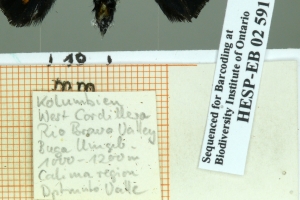 10
mm
Kolumbien
West Cordillera
Rio Bravo Valley
1000-1200m
Calima region
Sequenced for Barcoding at
Biodiversity Institute of Ontario
HESP-EB 02 591